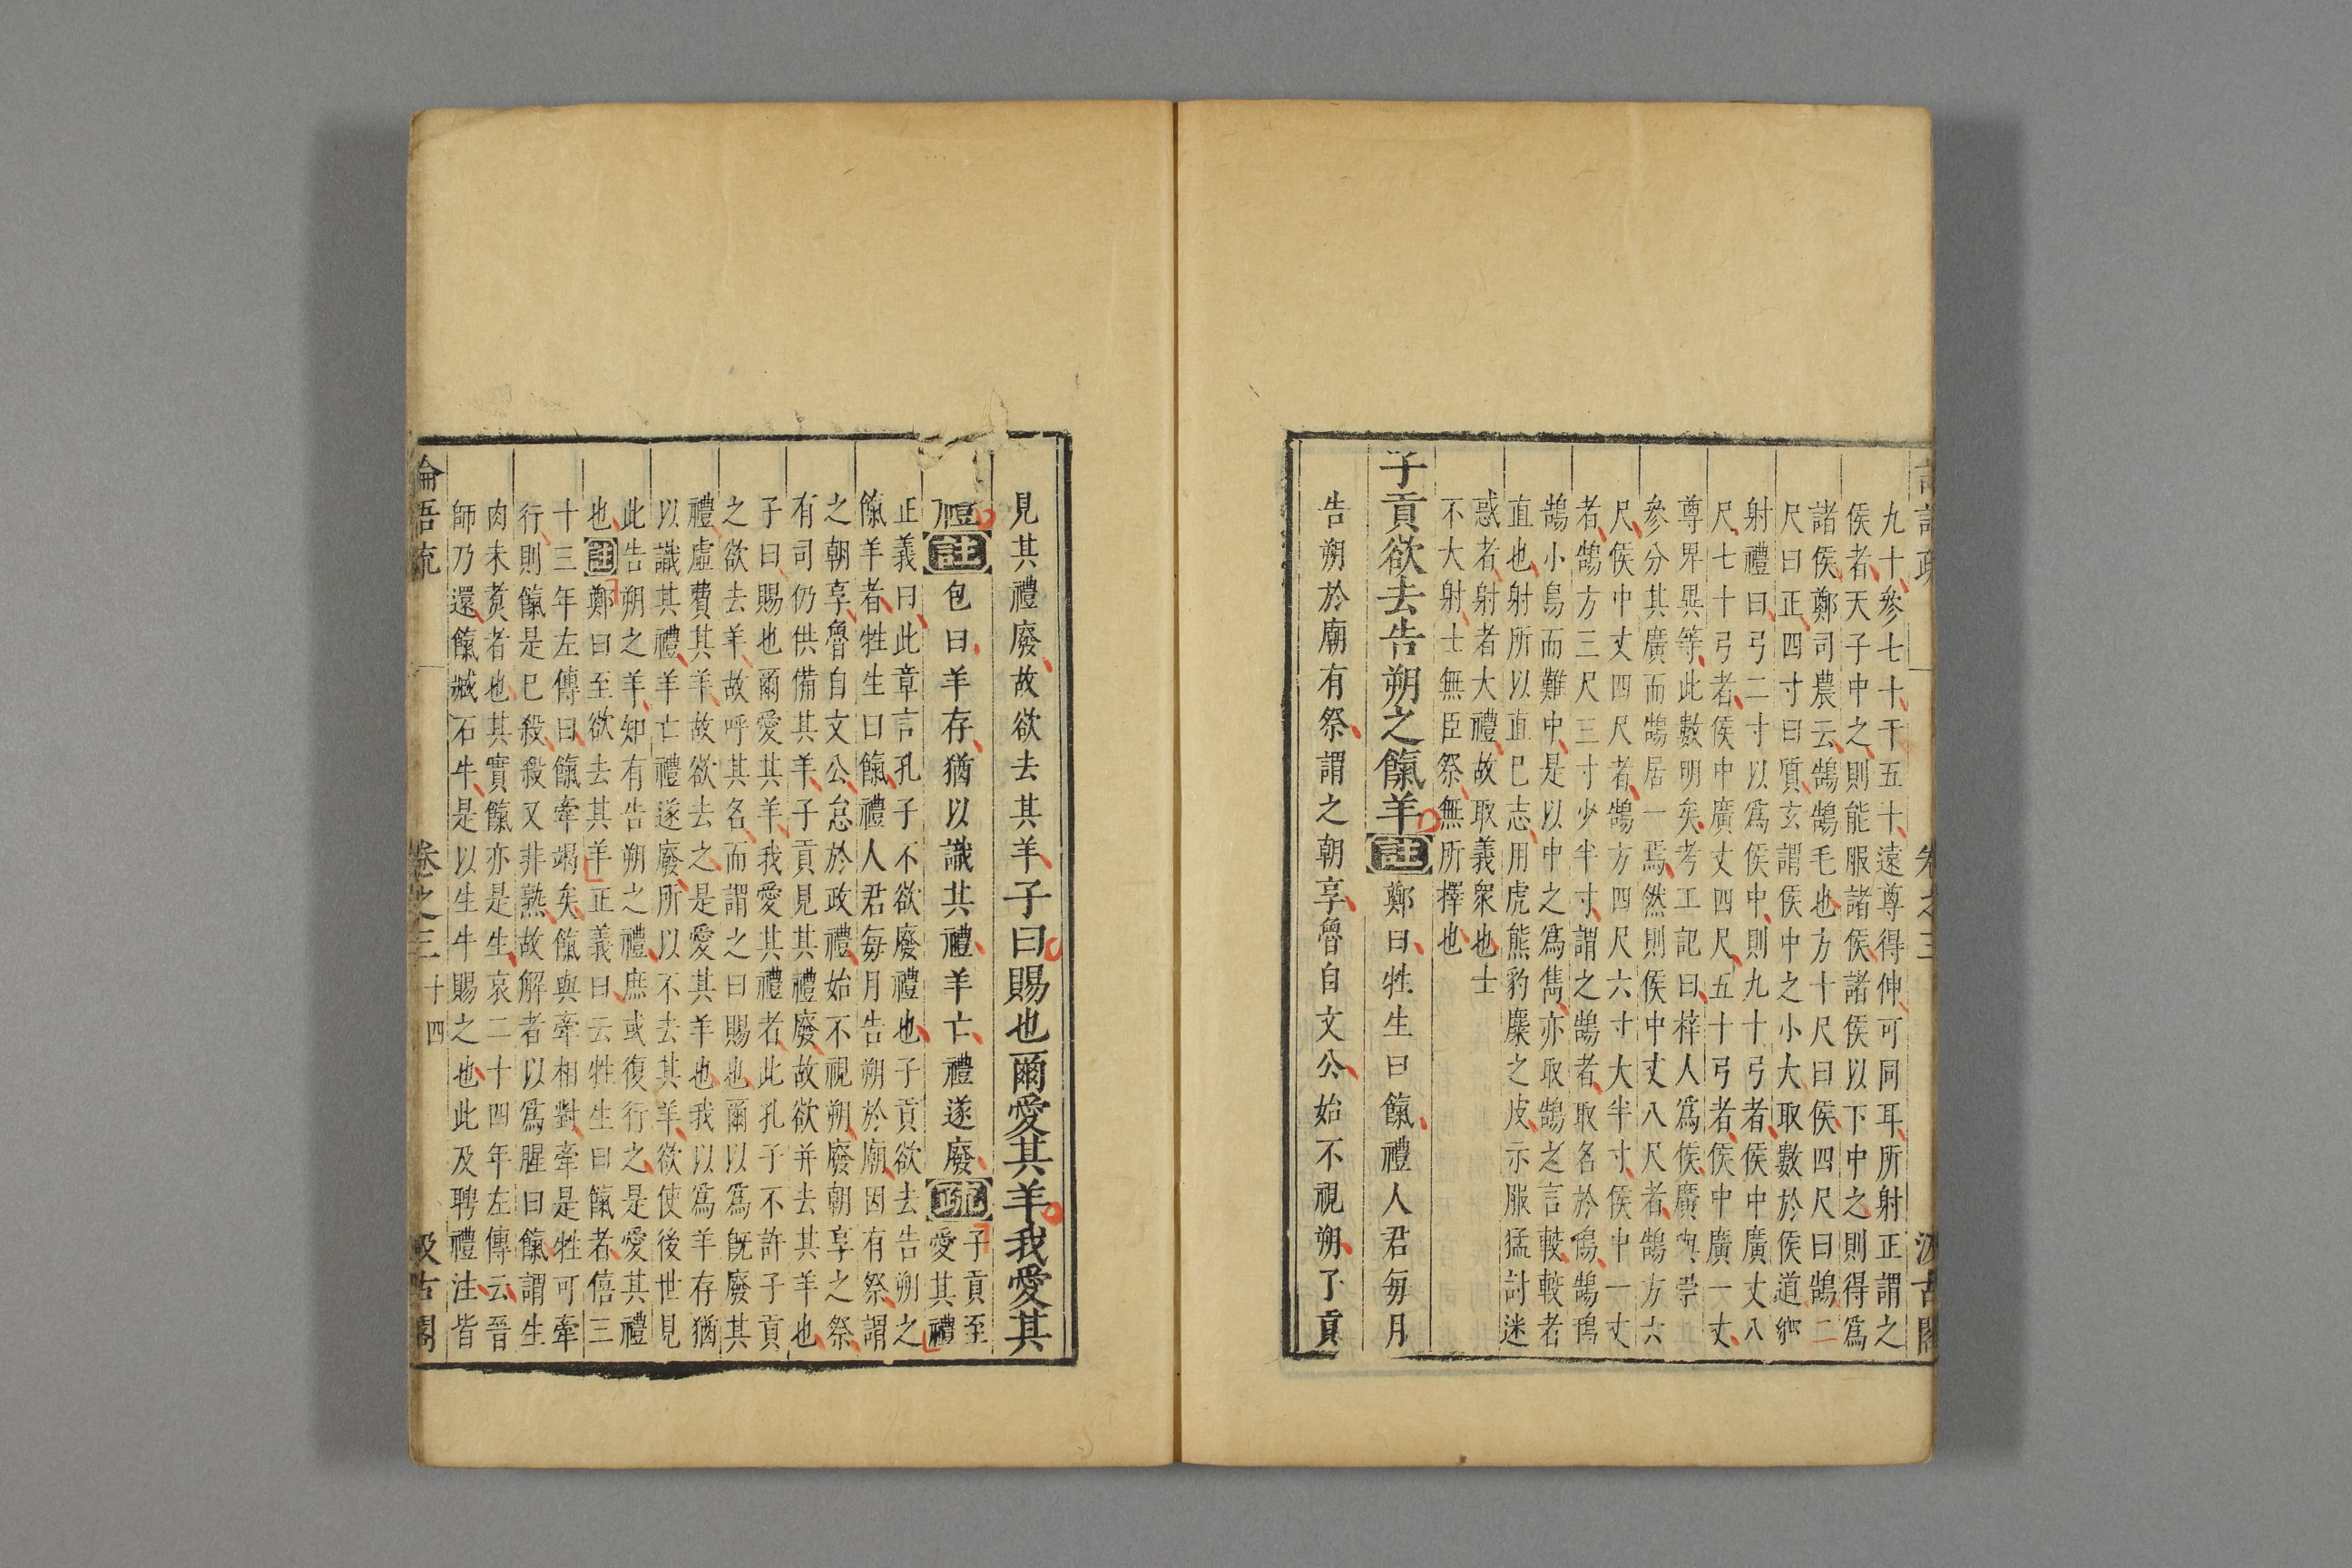 九十參七十干五十遠尊得伸可同耳所射正謂之
侯者天子中之則能服諸侯諸侯以下中之則得爲
諸侯鄭司農云鵠鵠毛也方十尺曰侯四尺曰鵠二
尺曰正四寸曰質玄謂侯中之小大取數於侯道鄉
射禮曰弓二寸以爲侯中則九十弓者侯中廣丈八
尺七十弓者侯中廣丈四尺五十弓者侯中廣一丈
尊卑異等此數明矣考工記曰梓人爲侯廣與崇方
參分其廣而鵠居一焉然則侯中丈八尺者鵠方六
尺侯中丈四尺者鵠方四尺六寸大半寸侯中一丈
者鵠方三尺三寸少半寸謂之鵠者取名於鳱鵠鳱
鵠小鳥而難中是以中之爲雋亦取鵠之言較較者
直也射所以直巳志用虎熊豹麋之皮示服猛討迷
惑者射者大禮故取義衆也士
不大射士無臣祭無所擇也
子貢欲去告朔之餼羊註鄭曰牲生曰餼禮人君每月
告朔於廟有祭謂之朝享魯自文公始不視朔子貢
見其禮廢故欲去其羊子曰賜也爾愛其羊我愛其
禮註包曰羊存猶以識其禮羊亡禮遂廢疏子貢至
愛其禮
正義曰此章言孔子不欲廢禮也子貢欲去告朔之
餼羊者牲生曰餼禮人君每月告朔於廟因有祭謂
之朝享魯自文公怠於政禮始不視朔廢朝享之祭
有司仍供備其羊子貢見其禮廢故欲并去其羊也
子曰賜也爾愛其羊我愛其禮者此孔子不許子貢
之欲去羊故呼其名而謂之曰賜也爾以爲旣廢其
禮虛費其羊故欲去之是愛其羊也我以爲羊存猶
以識其禮羊亡禮遂廢所以不去其羊欲使後世見
此告朔之羊知有告朔之禮庶或復行之是愛其禮
也註鄭曰至欲去其羊正義曰云牲生曰餼者僖三
十三年左傳曰餼牽竭矣餼與牽相對牽是牲可牽
行則餼是已殺殺又非熟故解者以爲腥曰餼謂生
肉未煑者也其實餼亦是生哀二十四年左傳云晉
師乃還餼臧石牛是以生牛賜之也此及聘禮注皆
論語疏 卷之三 十四 汲古閣